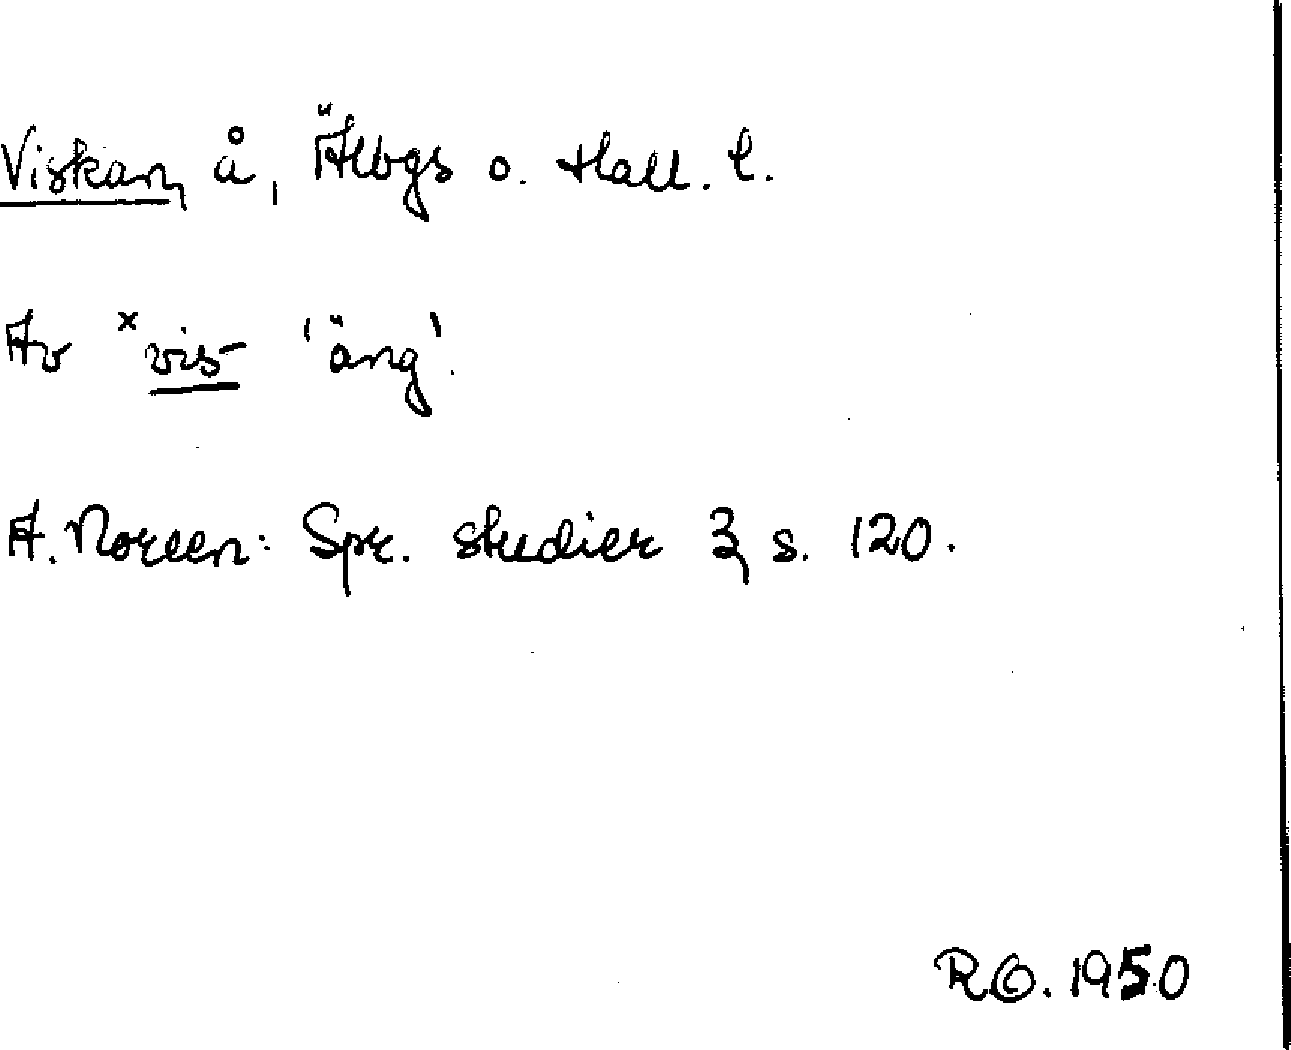 Viskan, å, Älvbgs o. Hall. l.
Av ˣvis- 'äng'.
A. Noreen: Spr. studier 3, s. 120.
R.G. 1950